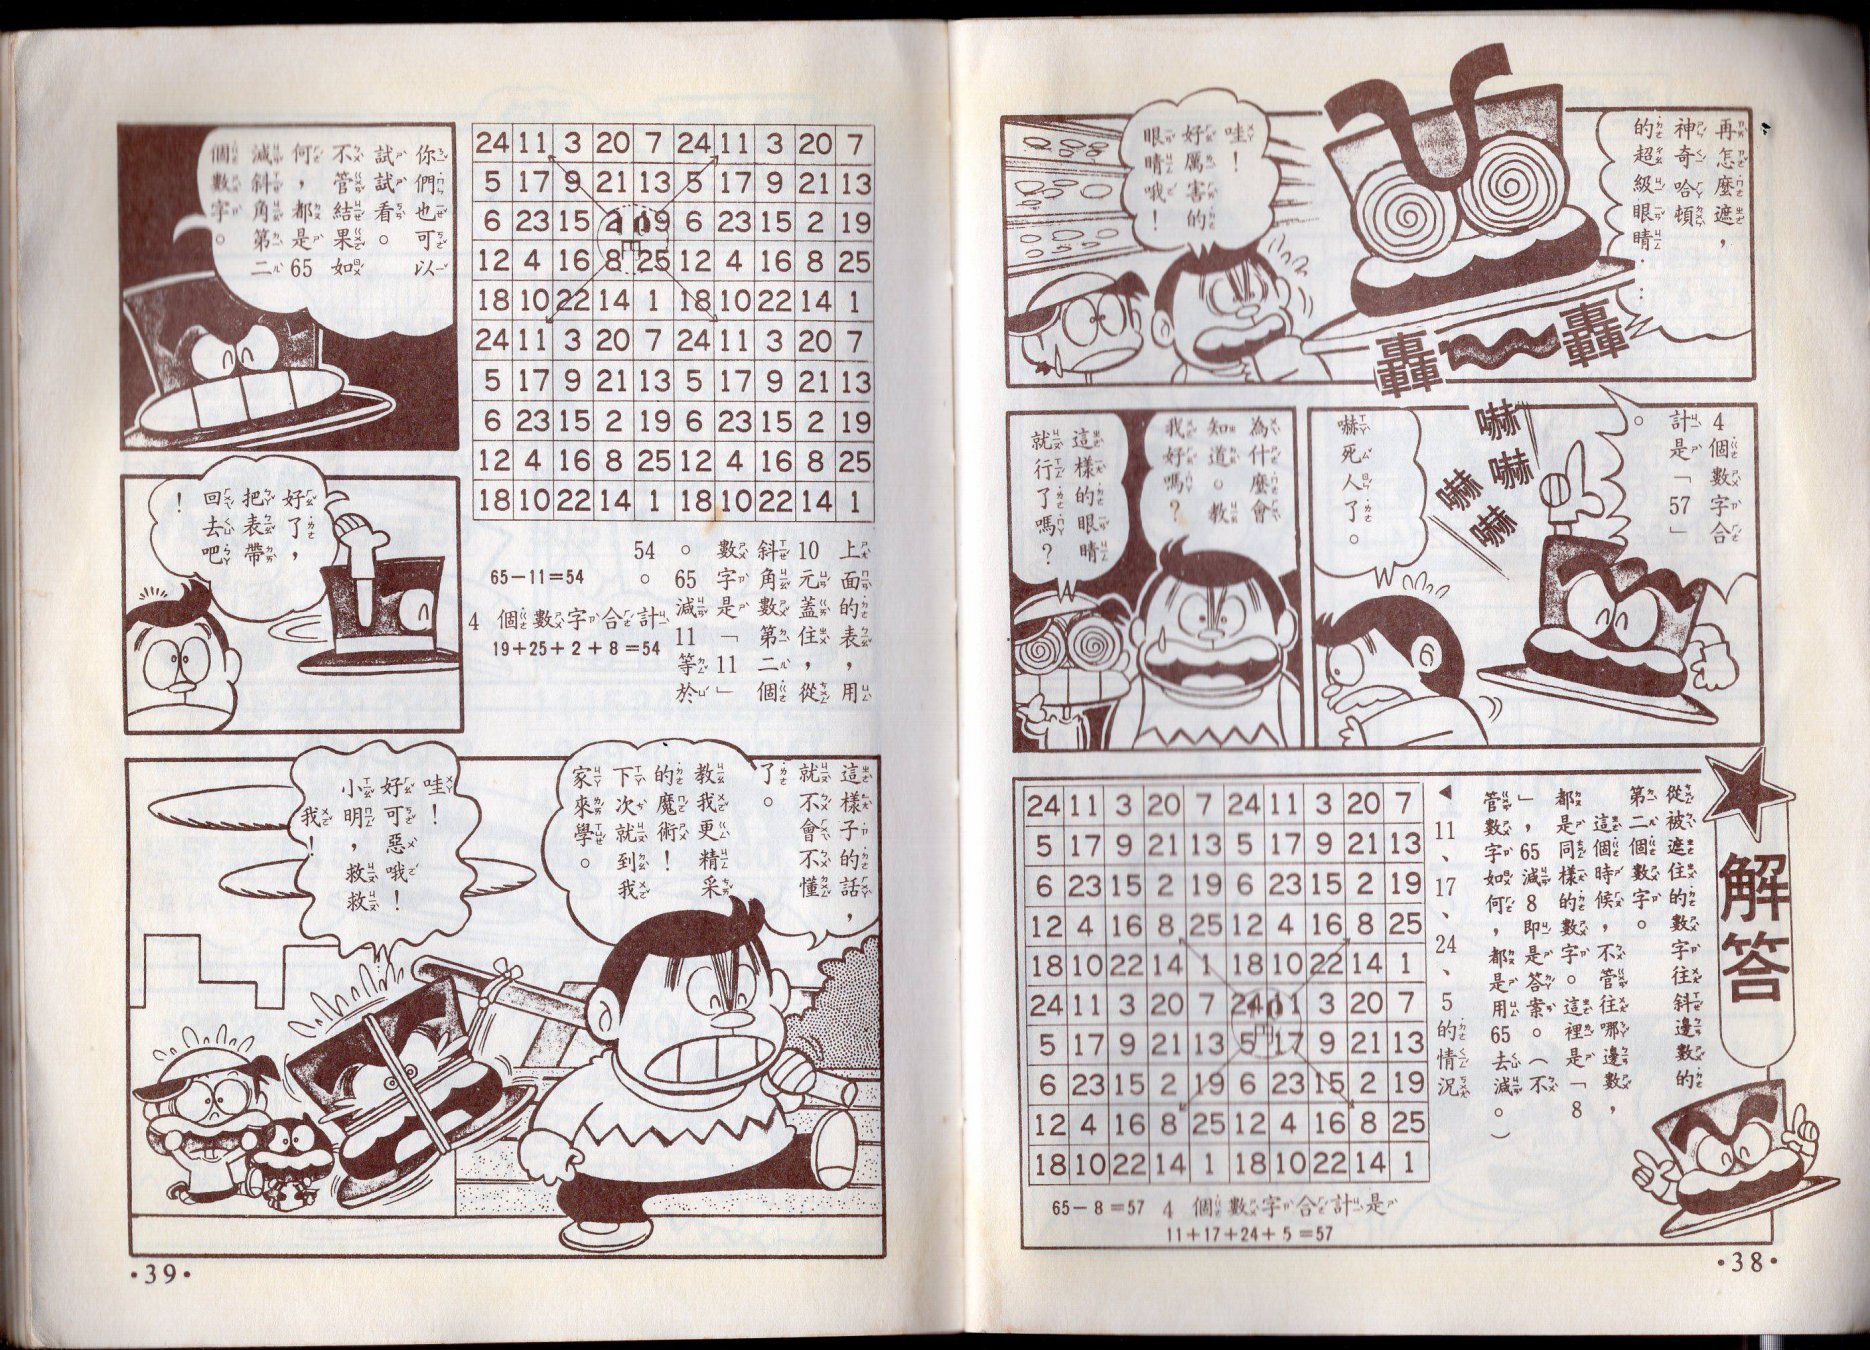 再怎麼遮，
神奇哈頓
的超級眼睛……
哇！
好厲害的
眼睛哦！
轟～轟
4個數字合
計是「57」
。
嚇嚇嚇嚇
嚇死人了。
為什麼會
知道。教
我好嗎？
這樣的眼睛
就行了嗎？
解答
從被遮住的數字往斜邊數的
第二個數字。
這個時候，不管往哪邊數，
都是同樣的數字。這裡是「8
」，65減8即是答案。（不
管數字如何，都是用65去減。）
◀11、17、24、5的情況
24 11 3 20 7 24 11 3 20 7
5 17 9 21 13 5 17 9 21 13
6 23 15 2 19 6 23 15 2 19
12 4 16 8 25 12 4 16 8 25
18 10 22 14 1 18 10 22 14 1
24 11 3 20 7 24 11 3 20 7
5 17 9 21 13 5 17 9 21 13
6 23 15 2 19 6 23 15 2 19
12 4 16 8 25 12 4 16 8 25
18 10 22 14 1 18 10 22 14 1
65－8＝57 4個數字合計是
11+17+24+5=57
·38·
24 11 3 20 7 24 11 3 20 7
5 17 9 21 13 5 17 9 21 13
6 23 15 2 19 6 23 15 2 19
12 4 16 8 25 12 4 16 8 25
18 10 22 14 1 18 10 22 14 1
24 11 3 20 7 24 11 3 20 7
5 17 9 21 13 5 17 9 21 13
6 23 15 2 19 6 23 15 2 19
12 4 16 8 25 12 4 16 8 25
18 10 22 14 1 18 10 22 14 1
上面的表，用
10元蓋住，從
斜角數第二個
數字是「11」
。65減11等於
54。
65－11＝54
4個數字合計
19+25+2+8=54
你們也可以
試試看。
不管結果如
何，都是65
減斜角第二
個數字。
好了，
把表帶
回去吧
！
這樣子的話，
就不會不懂
了。
教我更精采
的魔術！
下次就到我
家來學。
哇！
好可惡哦！
小明，救救
我！
·39·